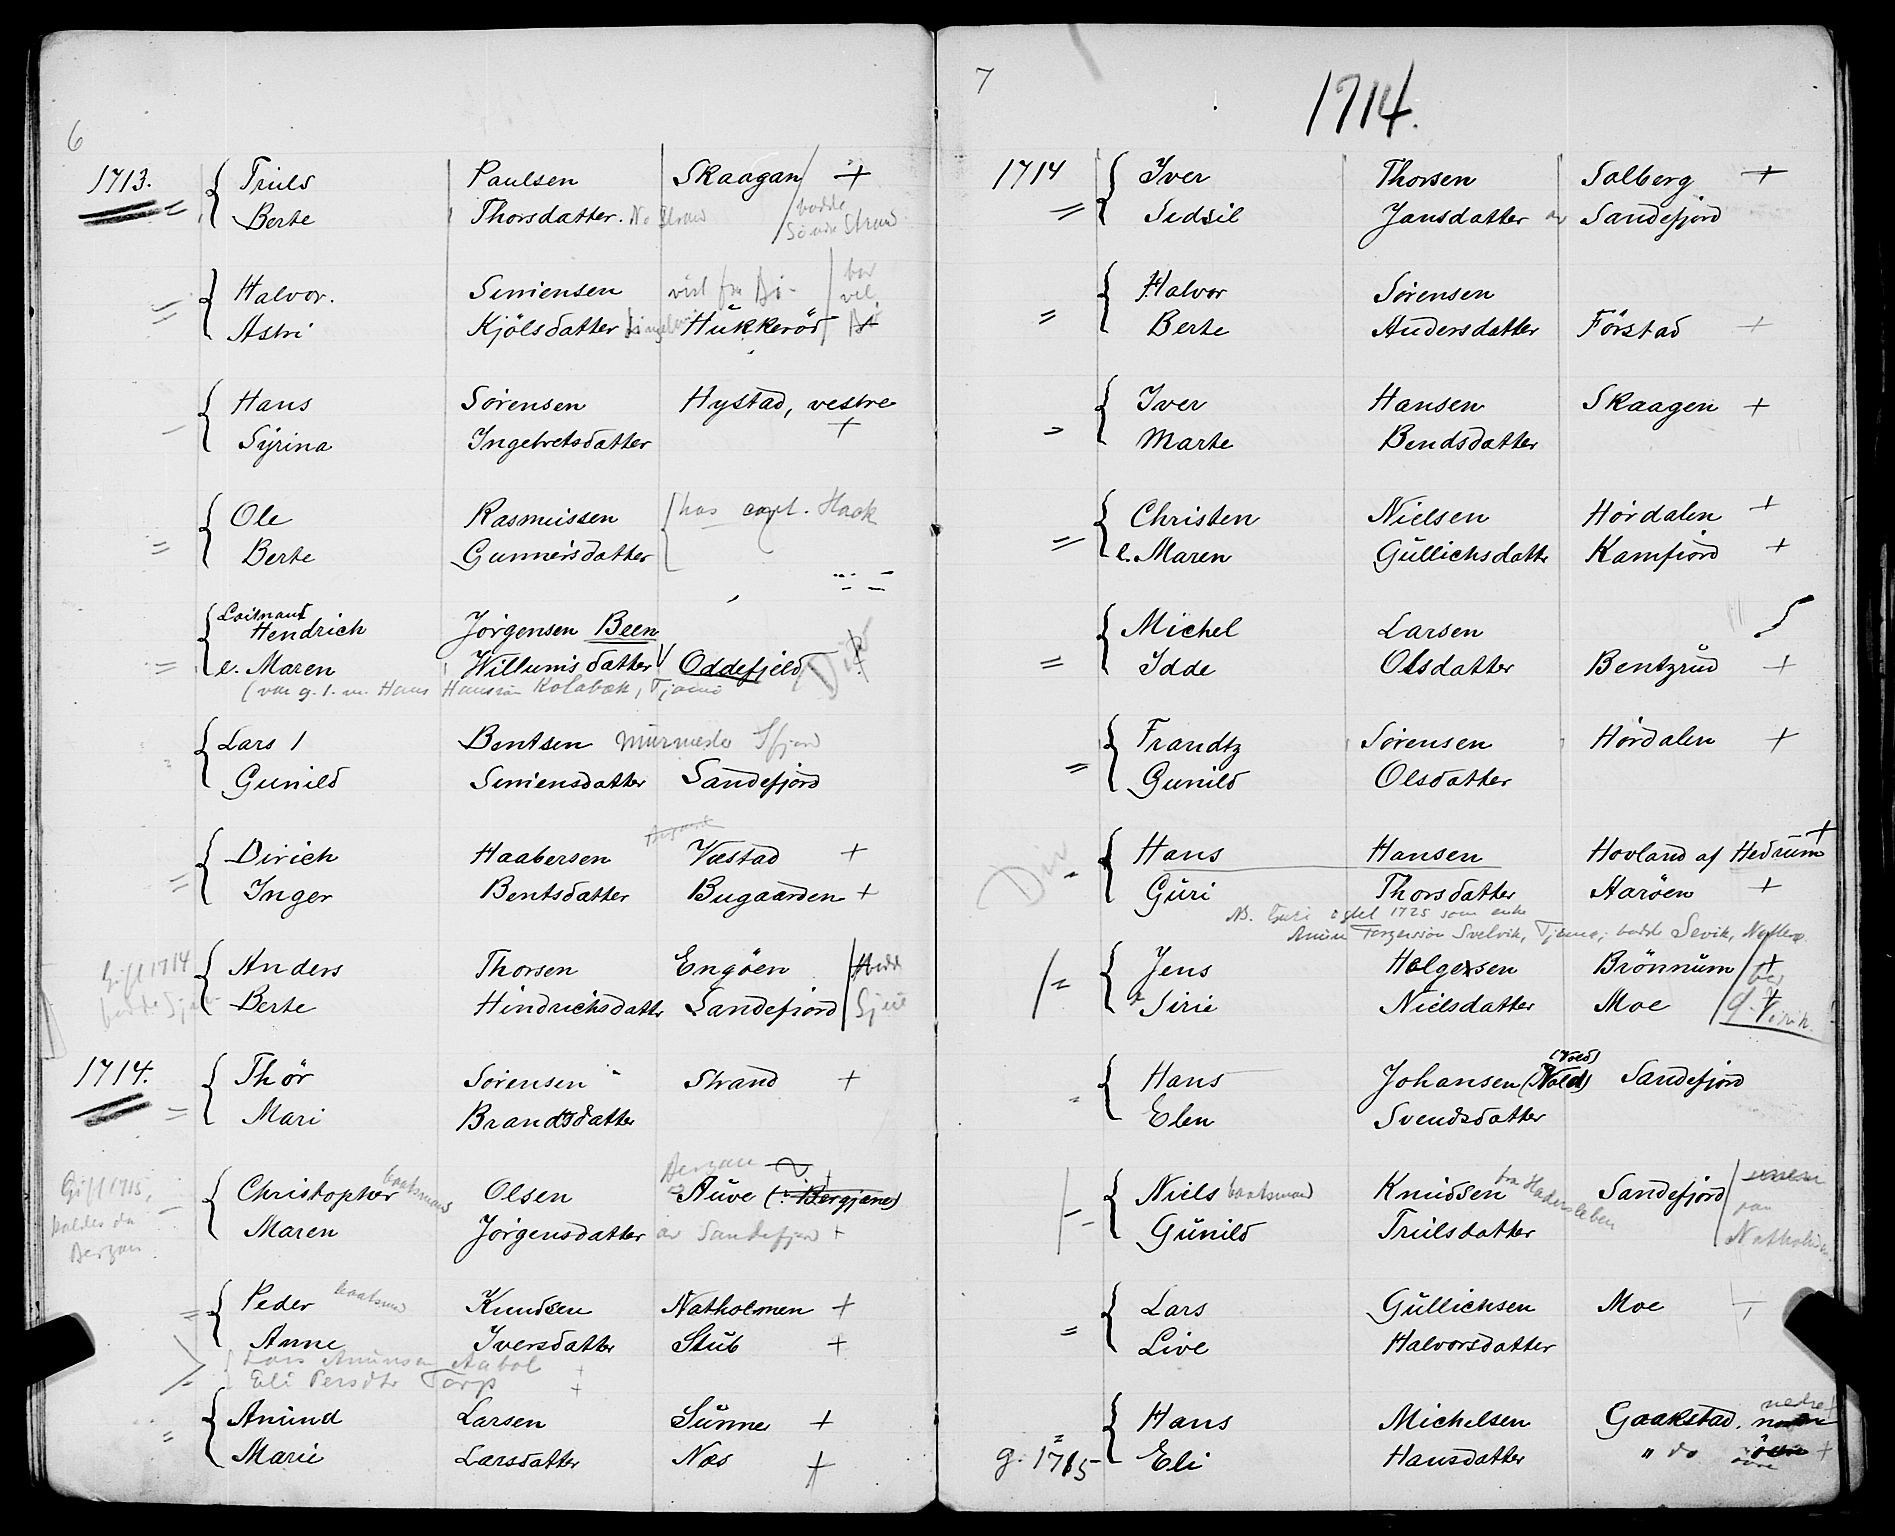 6
1713. Truls Paulsen Skaagan +
Berte Thorsdatter. No Strand bodde Søndre Strand
Halvor. Simensen vist fra Bø - bor vel
Astri Kjölsdatter Hukkeröd Bö
Hans Sörensen Hystad, vestre
Syrina Ingebretsdatter +
Ole Rasmussen hos capt. Hook
Berte Gunnersdatter
Loitnant
Hendrich Jörgensen Been
e. Maren Willumsdatter Oddefjeld
(var g. 1. m. Hans Hansen Kolabek, Tjømø
Lars 1 Bentsen murmester Sfjord
Gunild Simensdatter Sandefjord
Dirich Haabersen Væstad +
Inger Bentsdatter Bugaarden +
Gift 1714 Anders Thorsen Engöen bodde
bodde Berte Hindrichsdatter Sandefiord
1714. Thör Sörensen Strand +
Mari Brandtsdatter
Bergan
Gift 1715, Christopher baatsmans Olsen Auve (: Bergjane)
kaldes da Maren Jörgensdatter av Sandefjord +
Bergan
Peder baatsmd Knudsen Natholmen +
Anne Iversdatter Stub +
Lars Amunsen Aabol +
Eli Persdtr Torp +
Amund Larsen Sunne +
Marie Larsdatter Næs +
7
1714.
1714 Iver Thorsen Solberg +
Sidsil Jansdatter av Sandefjord
Halvor Sörensen
Berte Andersdatter Förstad +
Iver Hansen Skaagen +
Marte Bendsdatter
Christen Nielsen Hördalen +
e. Maren Gullichsdattr Kamfiord +
Michel Larsen
Idde Olsdatter Bentzrud +
Frandtz Sörensen Hördalen +
Gunild Olsdatter
Hans Hansen Hovland af Hedrum +
Guri Thorsdatter Haröen +
NB. Guri gift 1725 som enke
Amun Torgersen Svelvik, Tjømø; bodde Sevik, Nøtterø.
Jens Holgersen Brönnum +
Sirie Nielsdatter Moe
(Vold)
Hans Johansen (Vold) Sandefjord
Elen Svendsdatter
Niels baatsmand Knudsen fra Hadersleben Sandefjord
Gunild Trulsdatter paa Natholmen
Lars Gullichsen Moe +
Live Halvorsdatter
nedre
Hans Michelsen Gaakstad. nedre
g. 1715 Eli Hansdatter " do övre +
övre